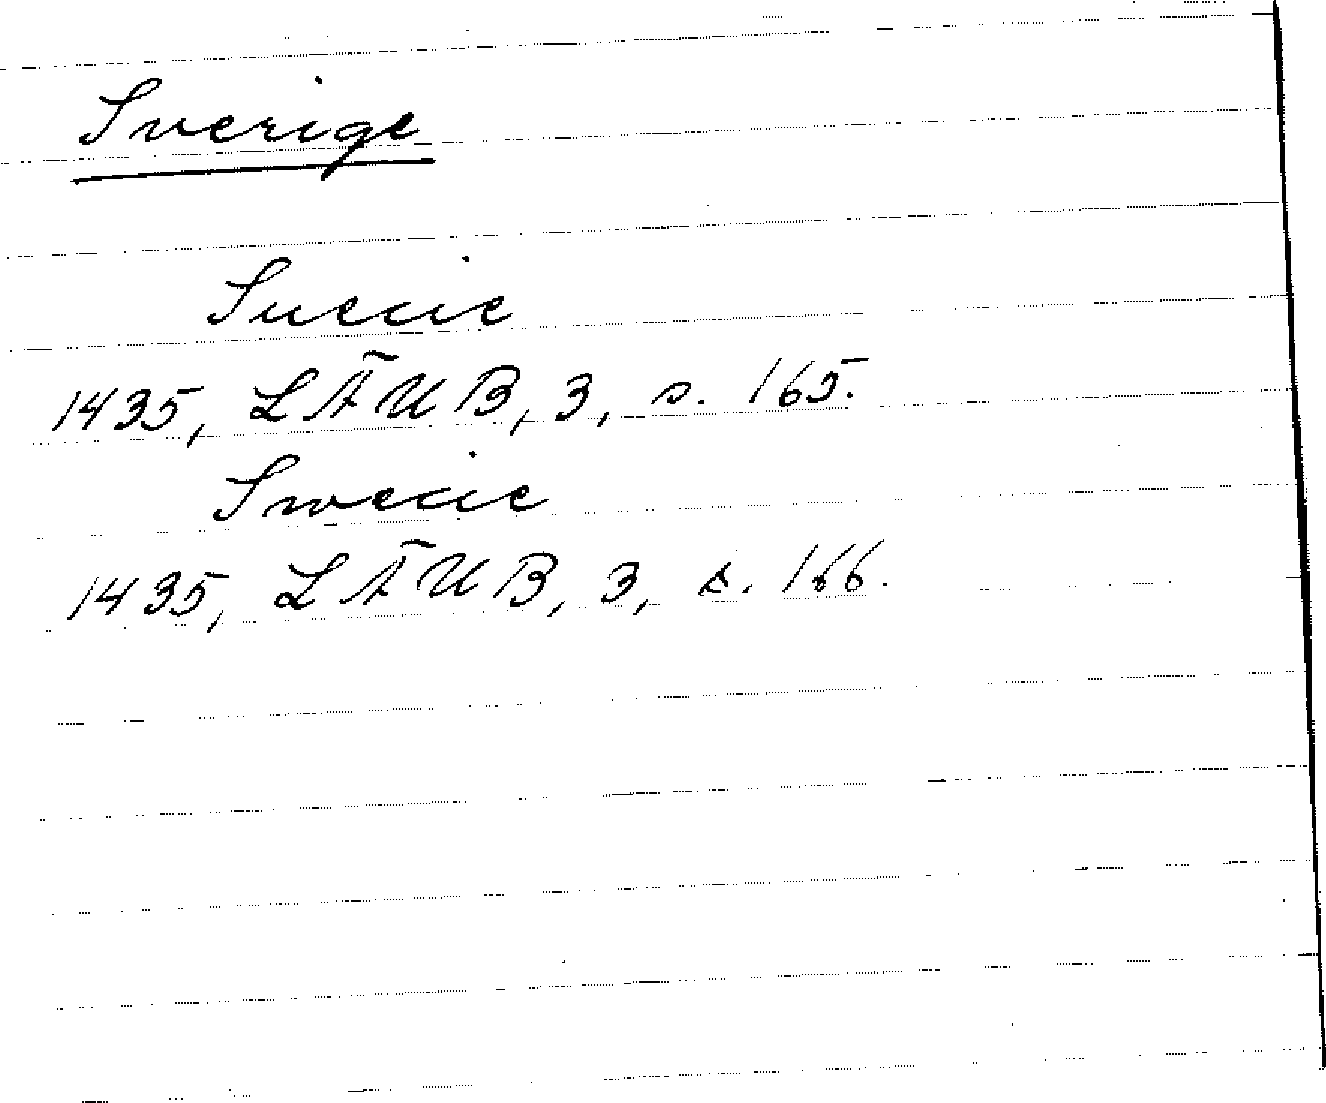 Sverige
Suecie
1435, LÄUB, 3, s. 165.
Swecie
1435, LÄUB, 3, s. 166.